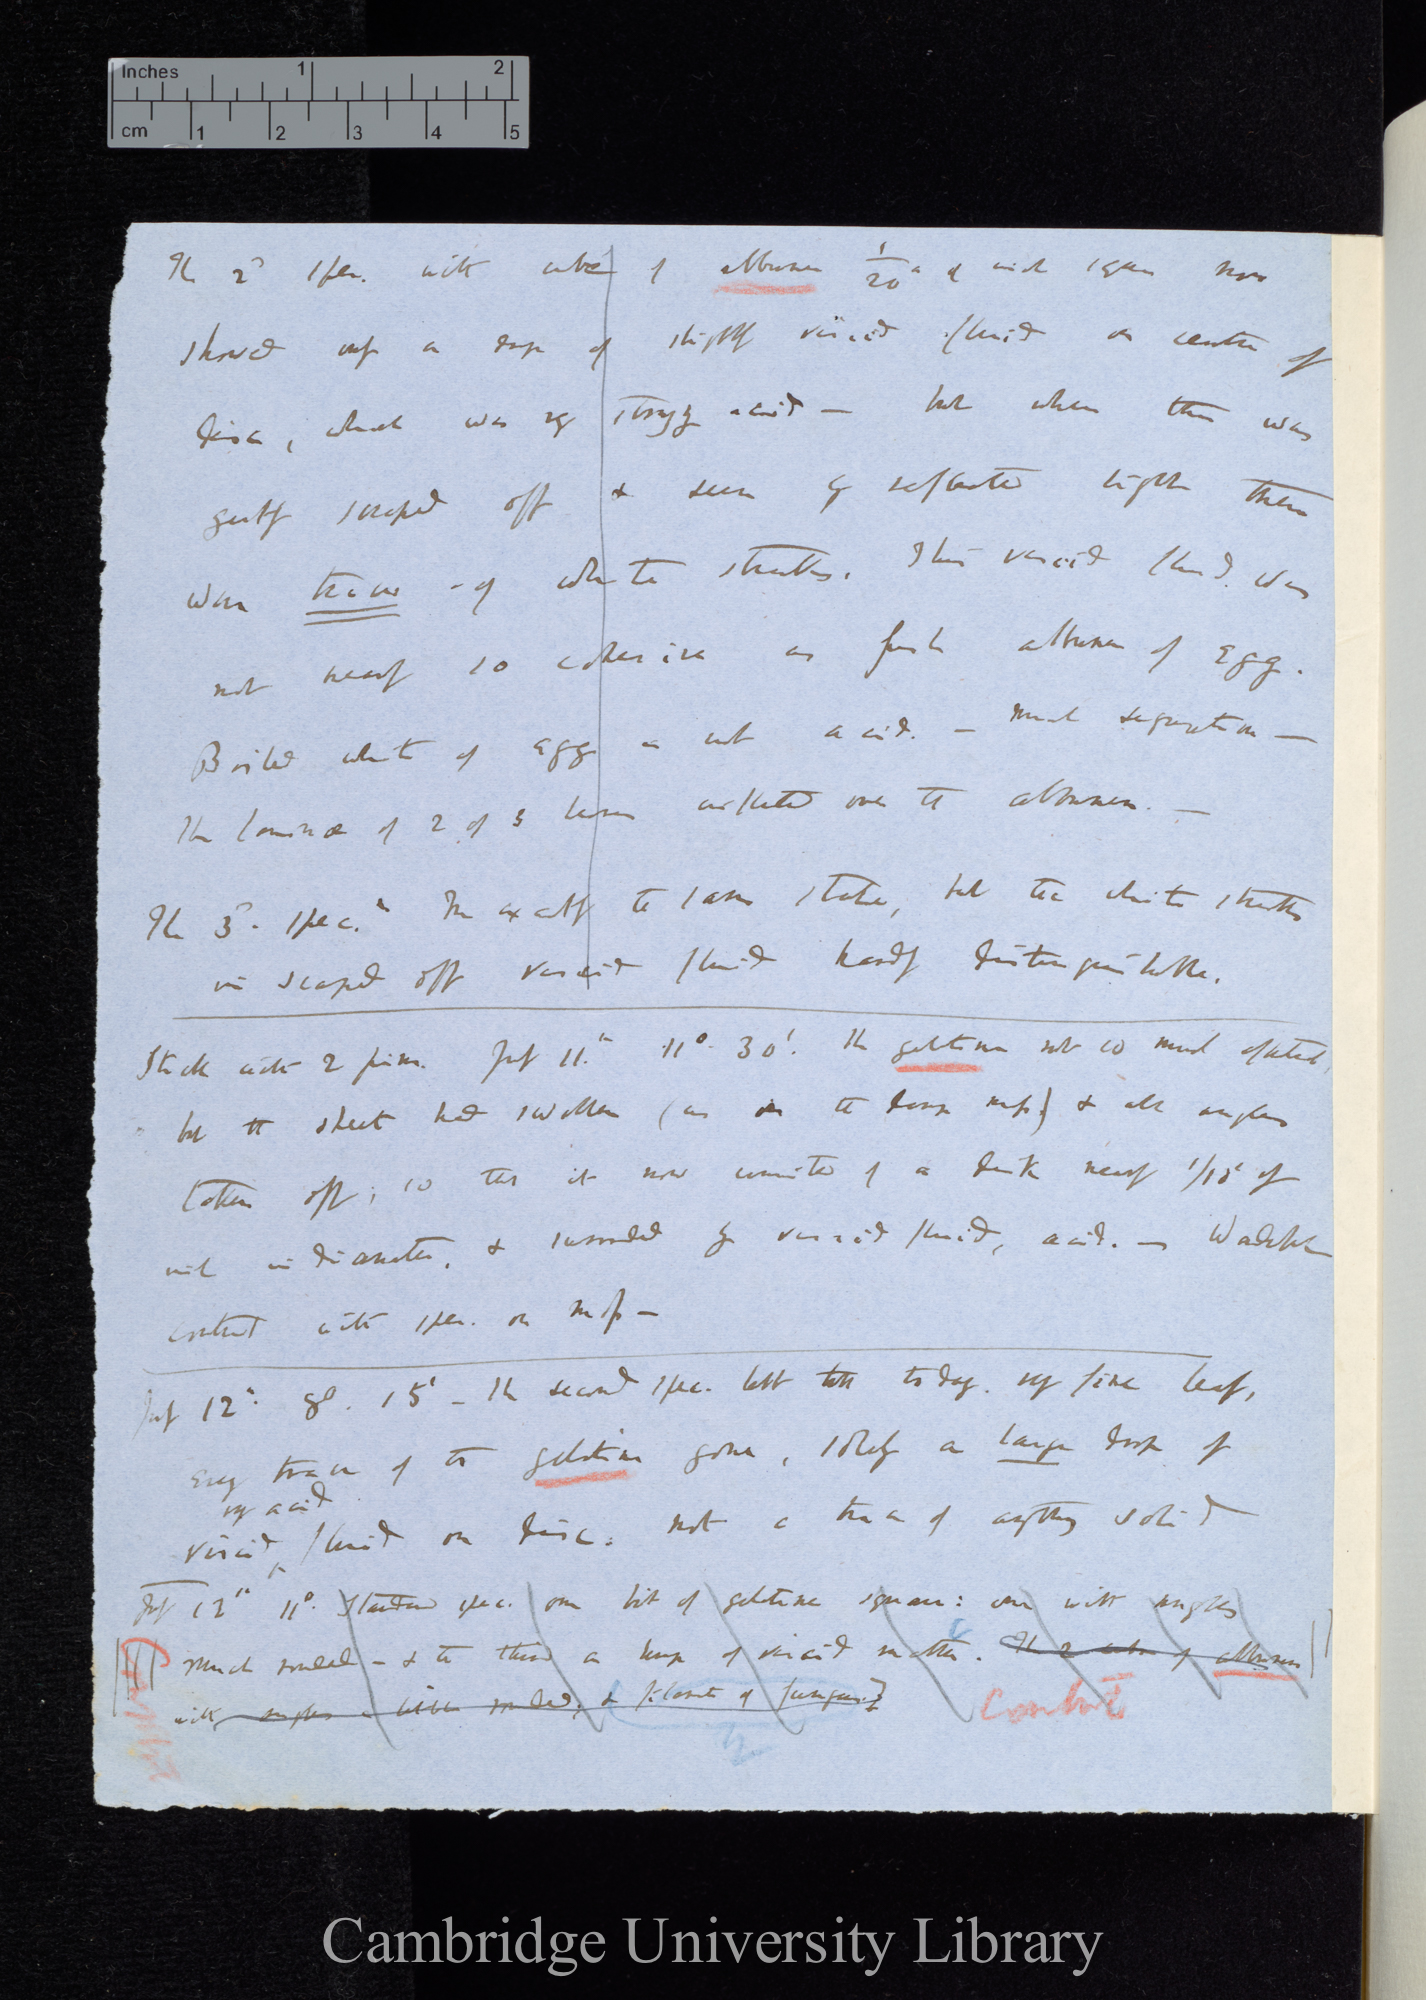 Inches 1 2
cm 1 2 3 4 5
The 2d spec. with cube of albumen 1/20th of inch square now
showed only a drop of slightly viscid fluid on centre of
disc, which was very strongly acid — but when this was
gently scraped off & seen by reflected light there
were traces of white streaks. This viscid fluid was
not nearly so cohesive as fresh albumen of egg.
Boiled white of egg is not acid. — much secretion —
The laminæ of 2 of 3 leaves inflected over the albumen. —
The 3d. spec.n in exactly the same state, but the white streaks
in scraped off viscid fluid hardly distinguishable.
Stick with 2 pins. July 11th 11° 30'. The gelatine not so much
but the sheet had swollen (as in the damp ) & all angles
taken off; so that it now consisted of a disk nearly 1/10' of
inch in diameter, & surrounded by viscid fluid, acid. — Wonderful
contrast with spec. on moss —
July 12th 8°. 15' — The second spec. left till today. very fine leaf,
every trace of the gelatine gone, solely a large drop of
very acid
viscid ^ fluid on disc. Not a trace of anything solid
July 12th 11°. Standard spec. one bit of gelatine square: one with angles
much rounded — & the third a drop of viscid matter. The 2 cubes of albumen
with angles a little rounded, & filaments of fungus.]
Contrast